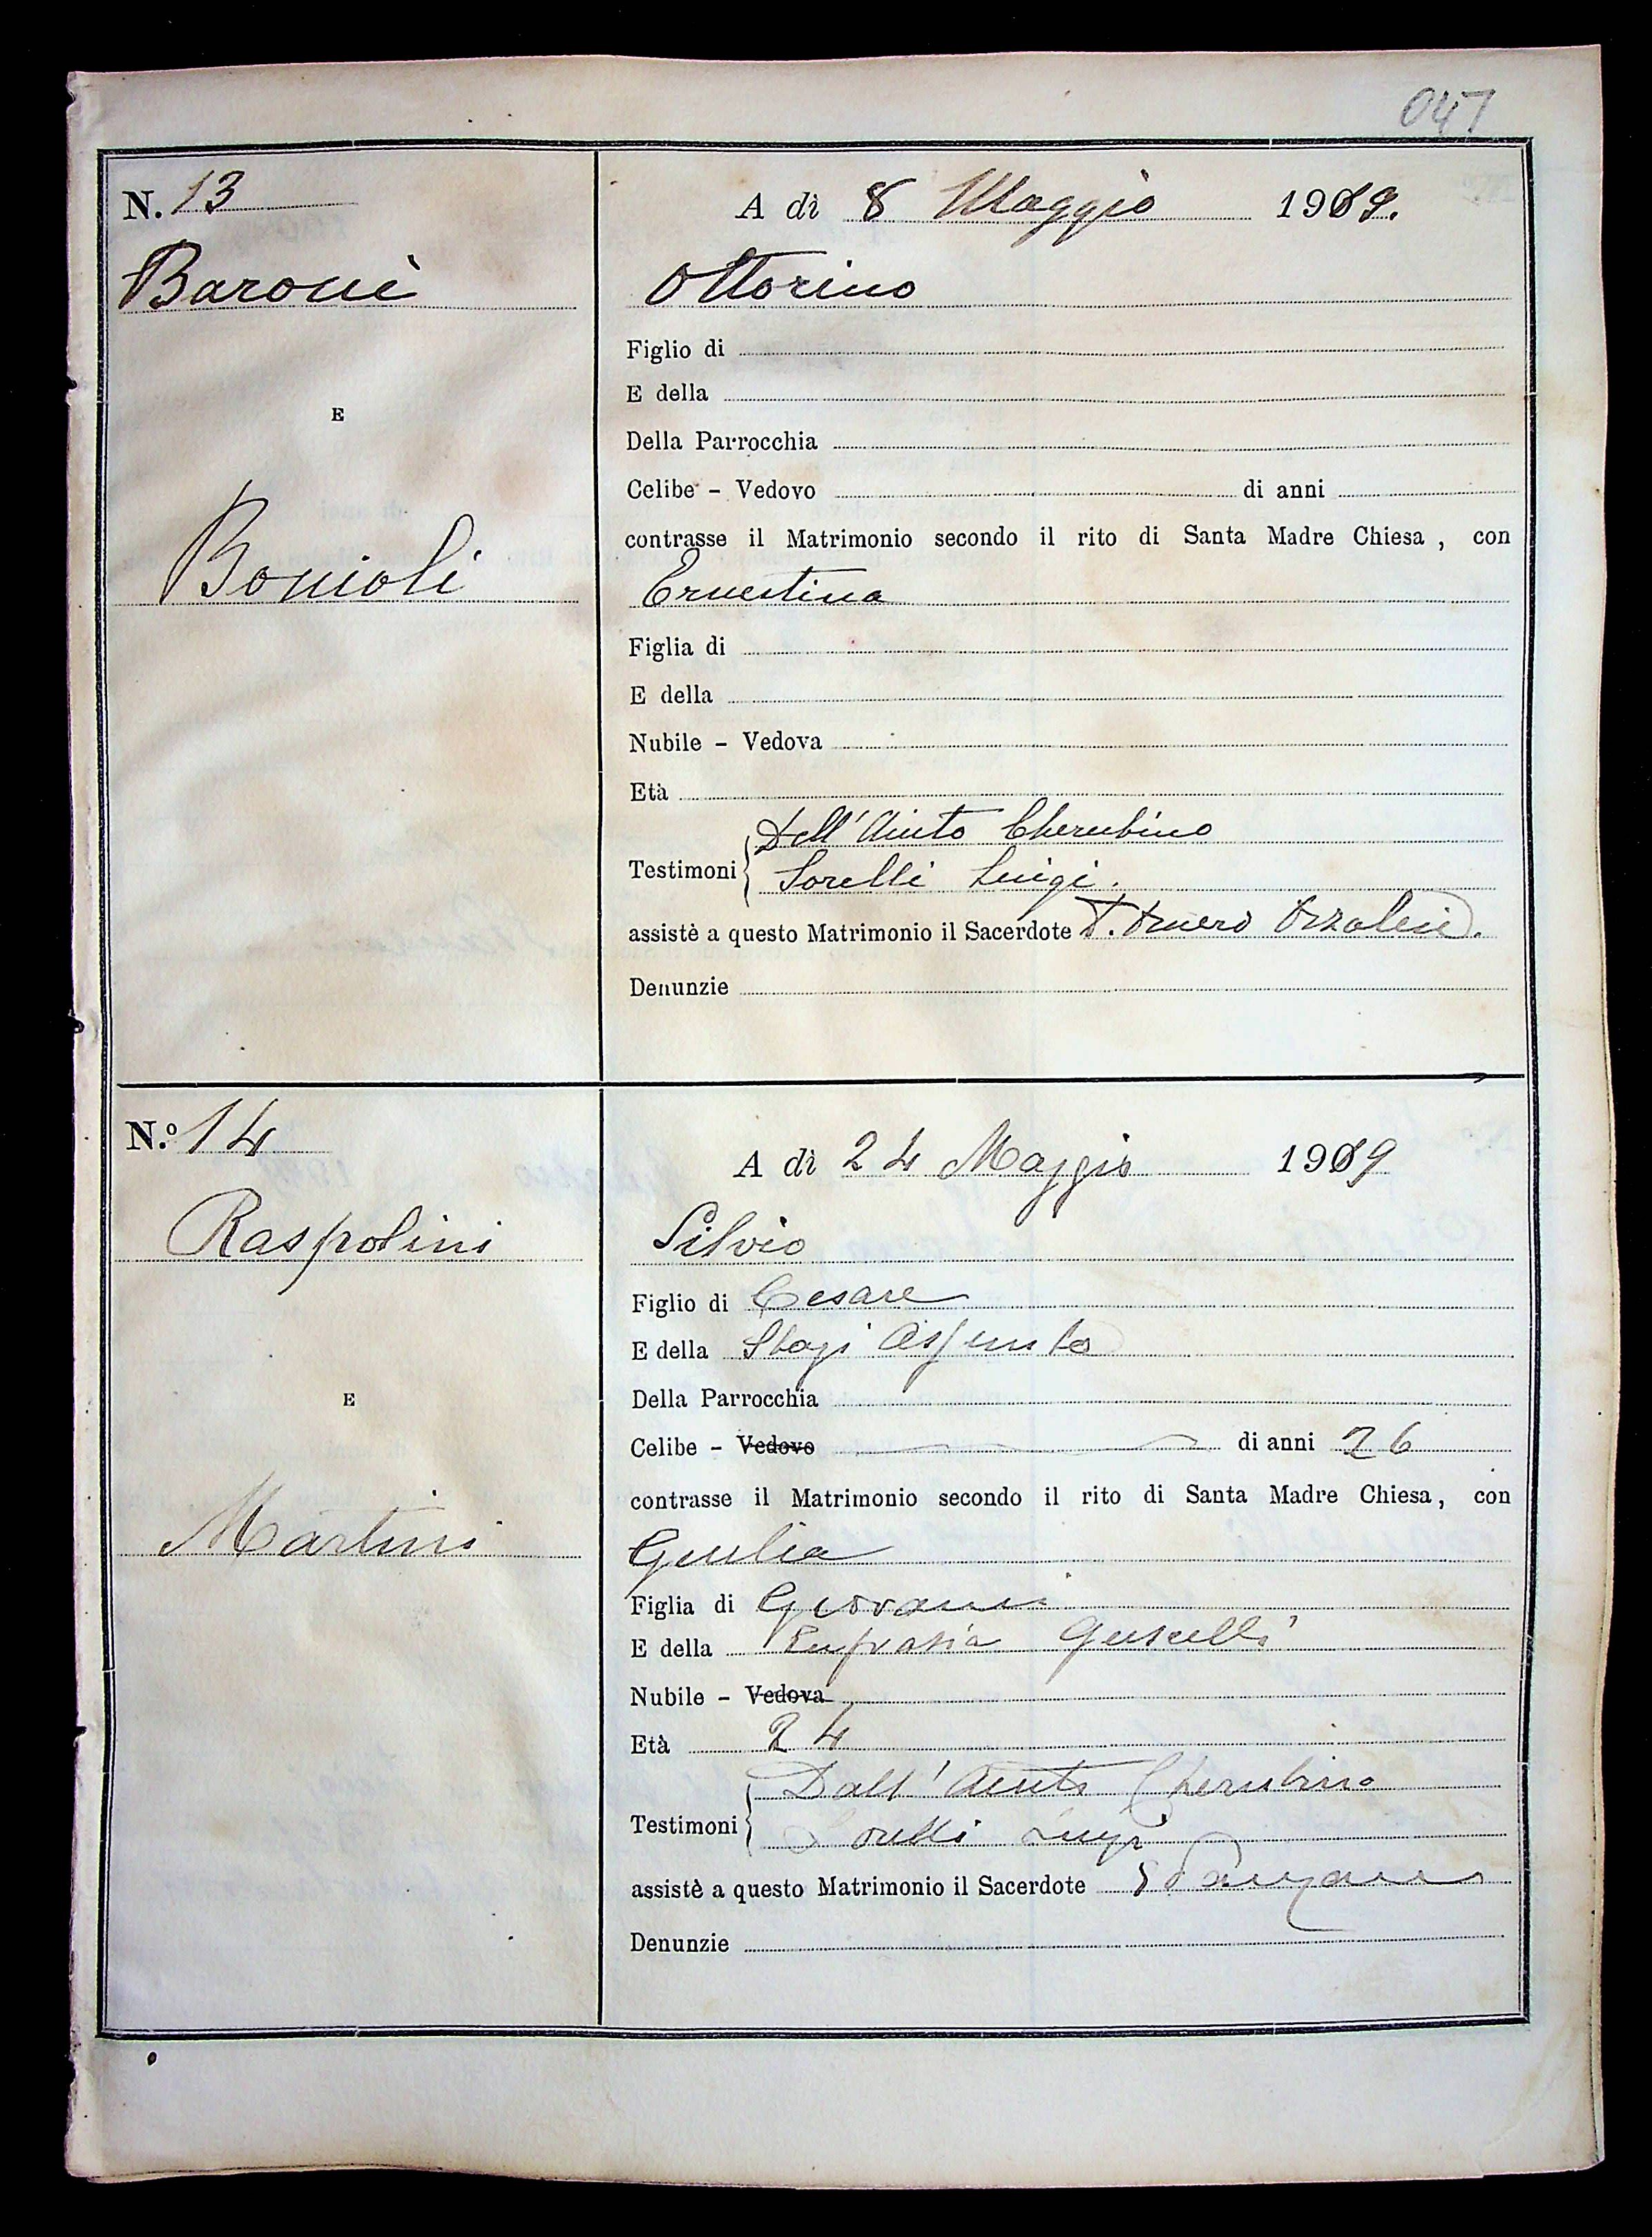 047
N. 13
A dì 8 Maggio 1919.
Baroni
Ottorino
Figlio di
E della
E
Della Parrocchia
Celibe - Vedovo di anni
contrasse il Matrimonio secondo il rito di Santa Madre Chiesa, con
Bonioli
Ernestina
Figlia di
E della
Nubile - Vedova
Età
Dell'Aiuto Cherubino
Testimoni
Sorelli Luigi.
assistè a questo Matrimonio il Sacerdote Orzalesi.
Denunzie
N.º 14
A dì 24 Maggio 1919
Raspolini
Silvio
Figlio di Cesare
E della Stagi Assunta
Della Parrocchia
E
Celibe - Vedovo di anni 26
contrasse il Matrimonio secondo il rito di Santa Madre Chiesa, con
Martini
Giulia
Figlia di Giovanni
E della Eufrasia
Nubile - Vedova
Età 24
Dall'Aiuto Cherubino
Testimoni
Sorelli Luigi
assistè a questo Matrimonio il Sacerdote
Denunzie